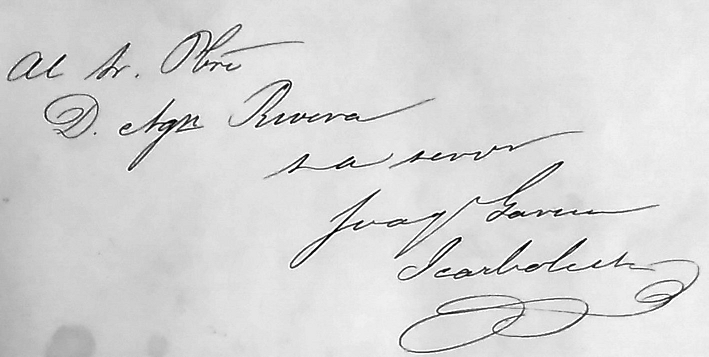 Al Sr. Pbro
D. Agn Rivera
su servor
Joaq Garcia
Icazbalceta